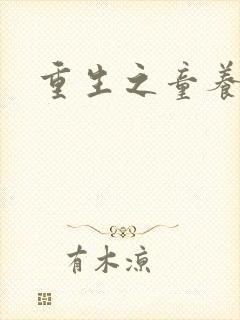 重生之童养
有木凉